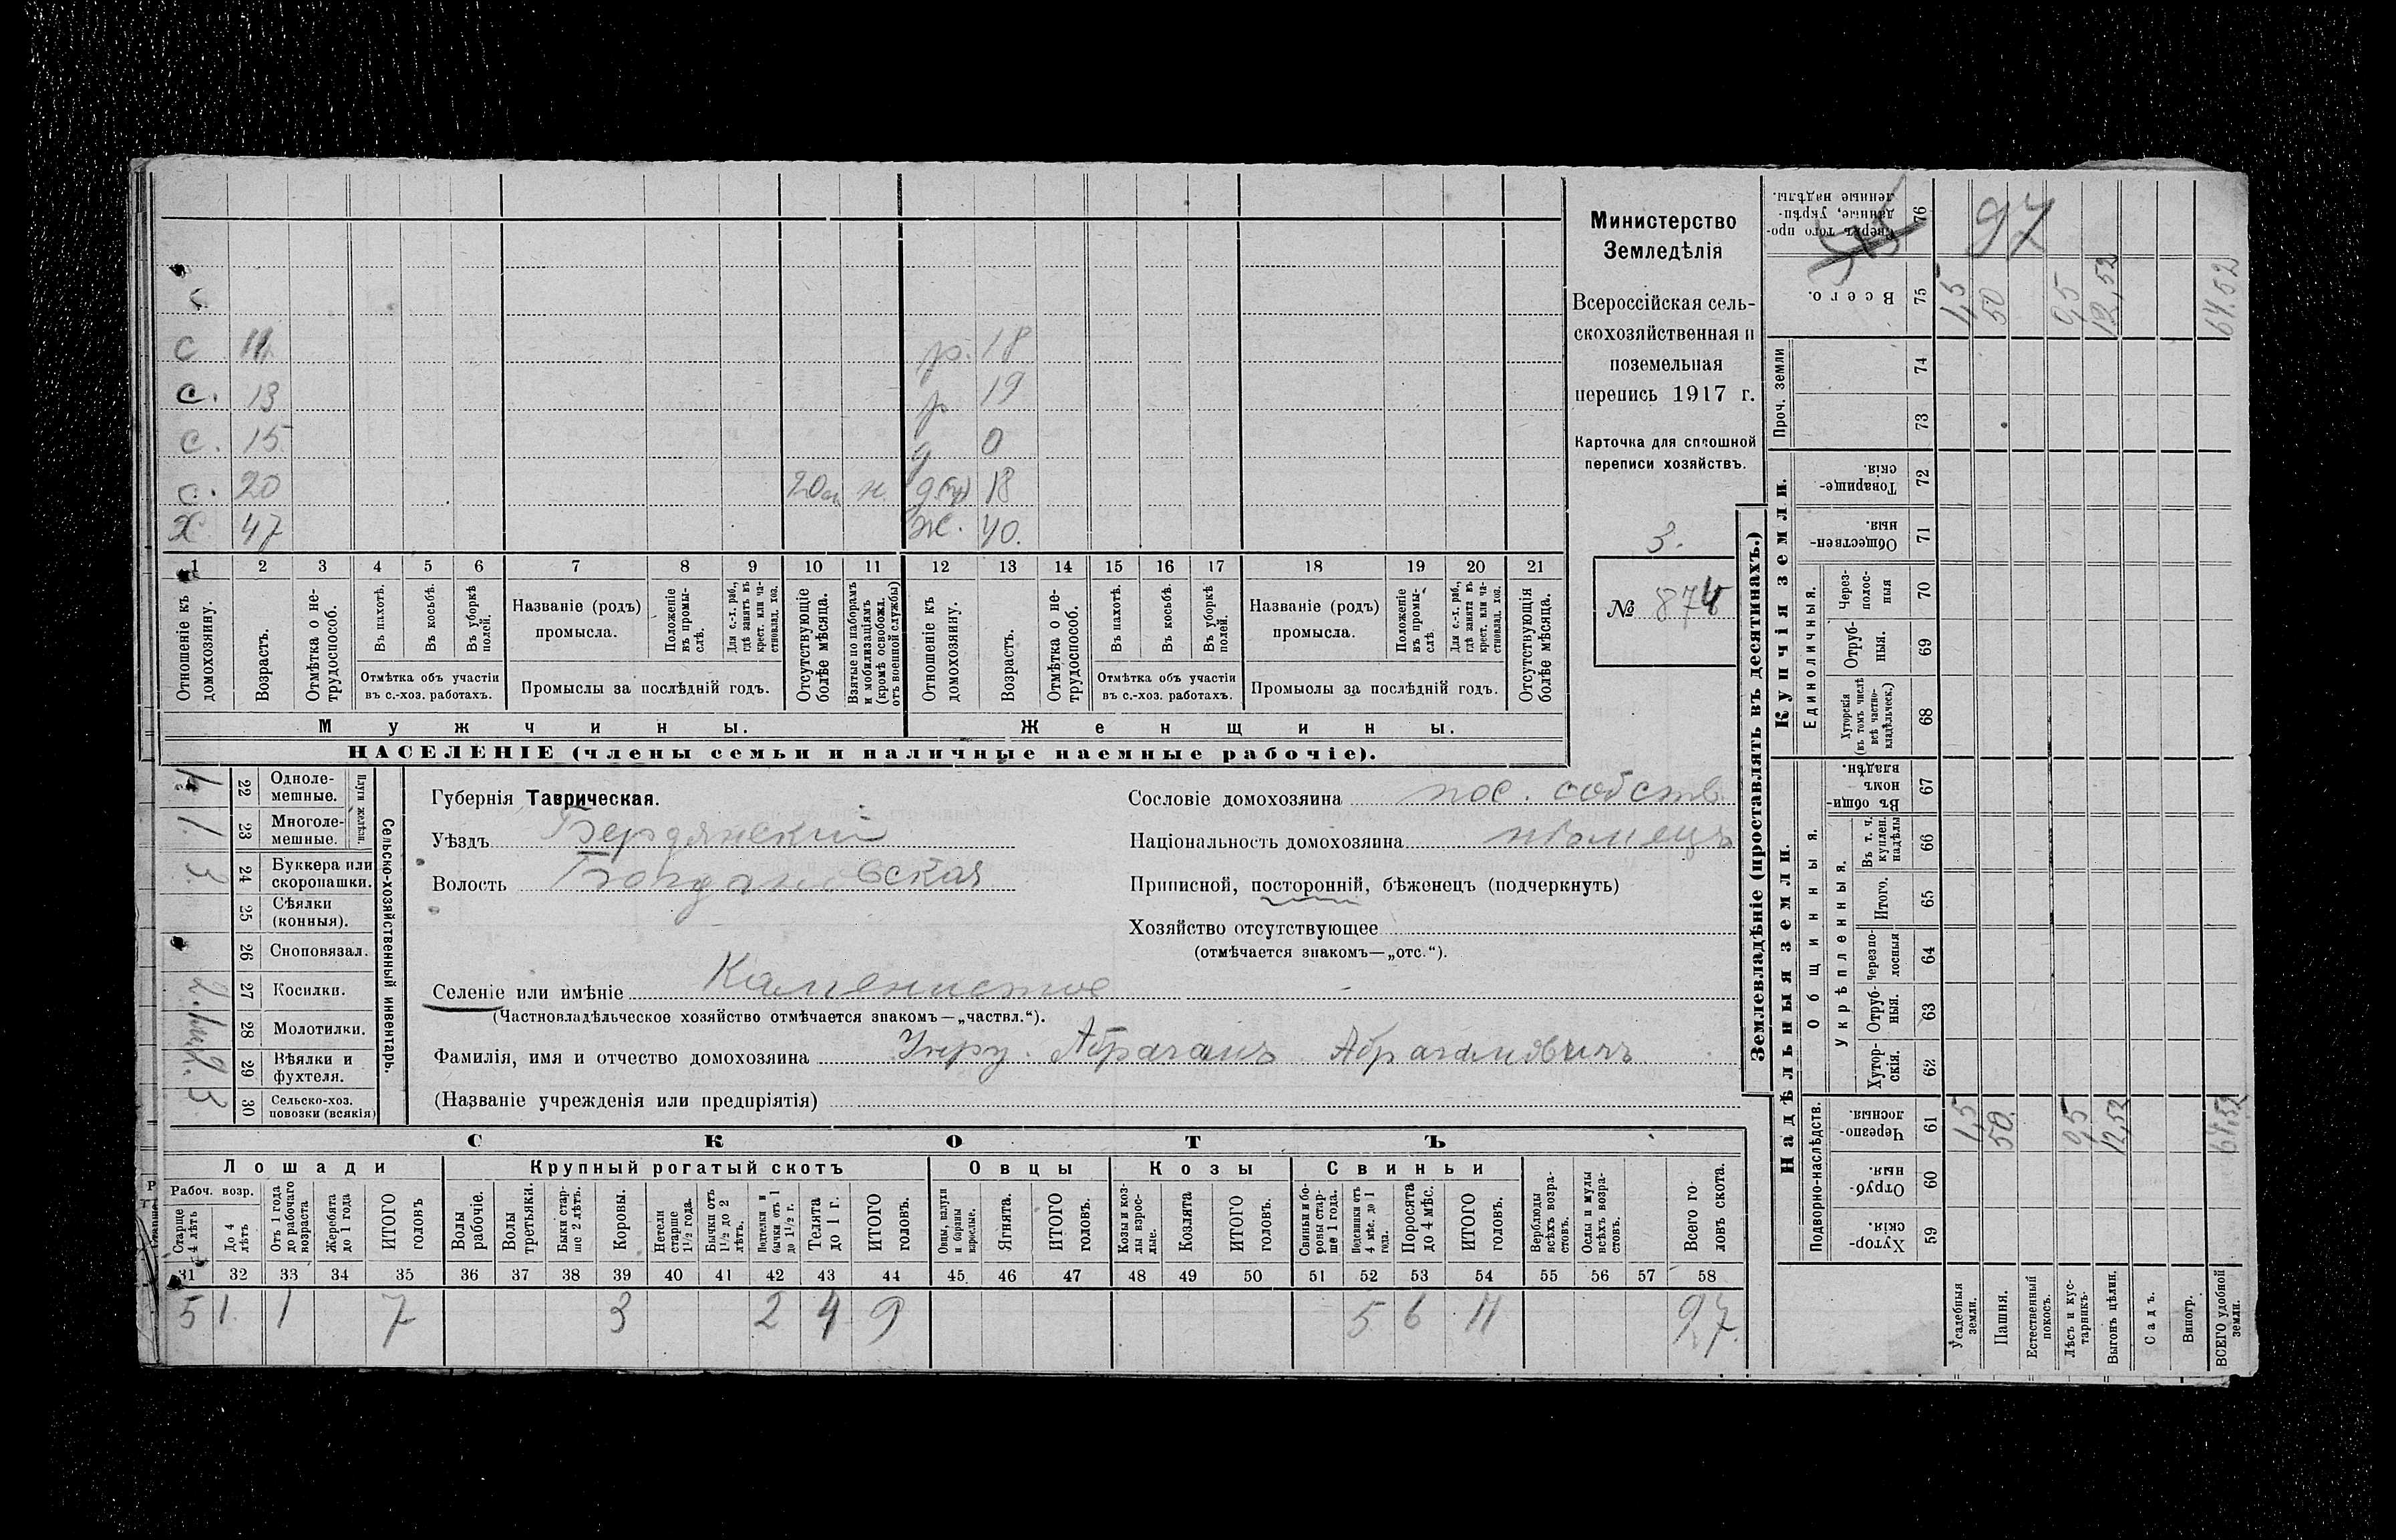 Министерство
Земледѣлія
Всероссійская сель-
скохозяйственная и
поземельная
перепись 1917 г.
Карточка для сплошной
переписи хозяйствъ.
3.
№ 874
С 11
р. 18
С. 13
р 19
С. 15
д 0
С. 20 20 н. д 18
Х 47 ж. 40.
1 2 3 4 5 6 7 8 9 10 11 12 13 14 15 16 17 18 19 20 21
Отношеніе къ домохозяину.
Возрастъ.
Отмѣтка о не-трудоспособ.
Въ пахотѣ.
Въ косьбѣ.
Въ уборкѣ полей.
Отмѣтка объ участіи въ с.-хоз. работахъ.
Названіе (родъ) промысла.
Положеніе въ промы-слѣ.
Для с.-х. раб., гдѣ занятъ въ крест. или ча-стновлад. хоз.
Промыслы за послѣдній годъ.
Отсутствующіе болѣе мѣсяца.
Взятые по наборамъ и мобилизаціямъ (кромѣ освобожд. отъ военной службы)
Отношеніе къ домохозяину.
Возрастъ.
Отмѣтка о не-трудоспособ.
Въ пахотѣ.
Въ косьбѣ.
Въ уборкѣ полей.
Отмѣтка объ участіи въ с.-хоз. работахъ.
Названіе (родъ) промысла.
Положеніе въ промы-слѣ.
Для с.-х. раб., гдѣ занята въ крест. или ча-стновлад. хоз.
Промыслы за послѣдній годъ.
Отсутствующія болѣе мѣсяца.
Мужчины. Женщины.
НАСЕЛЕНІЕ (члены семьи и наличные наемные рабочіе).
Сельско-хозяйственный инвентарь.
Плуги желѣзн.
22 Одноле-мешные.
1 23 Многоле-мешные.
3. 24 Буккера или скоропашки.
25 Сѣялки (конныя).
26 Сноповязал.
27 Косилки.
28 Молотилки.
29 Вѣялки и фухтеля.
3 30 Сельско-хоз. повозки (всякія)
Губернія Таврическая.
Уѣздъ Бердянскій
Волость Богдановская
Селеніе или имѣніе Каменистое
(Частновладѣльческое хозяйство отмѣчается знакомъ—„частвл.“).
Фамилія, имя и отчество домохозяина Унру. Абрагамъ Абрагамовичъ
(Названіе учрежденія или предпріятія)
Сословіе домохозяина пос. собств.
Національность домохозяина нѣмецъ
Приписной, посторонній, бѣженецъ (подчеркнуть)
Хозяйство отсутствующее
(отмѣчается знакомъ—„отс.“).
СКОТЪ
Лошади Крупный рогатый скотъ Овцы Козы Свиньи
Рабоч. возр.
Старше 4 лѣтъ
До 4 лѣтъ
Отъ 1 года до рабочаго возраста
Жеребята до 1 года
ИТОГО головъ
Волы рабочіе.
Волы третьяки.
Быки стар-ше 2 лѣтъ.
Коровы.
Нетели старше 1½ года.
Бычки отъ 1½ до 2 лѣтъ.
Подтелки и бычки отъ 1 до 1½ г.
Телята до 1 г.
ИТОГО головъ.
Овцы, валухи и бараны взрослые.
Ягнята.
ИТОГО головъ.
Козы и коз-лы взрос-лые.
Козлята
ИТОГО головъ.
Свиньи и бо-ровы стар-ше 1 года.
Подсвинки отъ 4 мѣс. до 1 года.
Поросята до 4 мѣс.
ИТОГО головъ.
Верблюды всѣхъ возра-стовъ.
Ослы и мулы всѣхъ возра-стовъ.
Всего го-ловъ скота.
31 32 33 34 35 36 37 38 39 40 41 42 43 44 45 46 47 48 49 50 51 52 53 54 55 56 57 58
5 1. 1 7 3 2 4 9 5 6 11 27.
Землевладѣніе (проставлять въ десятинахъ.)
Надѣльныя земли. Купчія земли. Проч. земли
Подворно-наслѣдств. Общинныя. Укрѣпленныя. Единоличныя.
Хутор-скія. 59
Отруб-ныя. 60
Черезпо-лосныя. 61
Хутор-скія. 62
Отруб-ныя. 63
Черезпо-лосныя 64
Итого. 65
Въ т. ч. куплен. надѣлы 66
Въ общи-номъ владѣн. 67
Хуторскія (въ томъ числѣ всѣ частно-владѣльческ.) 68
Отруб-ныя. 69
Через-полос-ныя 70
Обществен-ныя. 71
Товарище-скія. 72
73
74
Всего. 75
Сверхъ того про-данные, укрѣп-ленные надѣлы. 76
97
Усадебныя земли. 1,5 1,5
Пашня. 50. 50
Естественный покосъ.
Лѣсъ и кус-тарникъ. 0,5 0,5
Выгонъ цѣлин. 12,52 12,52
Садъ.
Виногр.
ВСЕГО удобной земли. 64,52 64.52